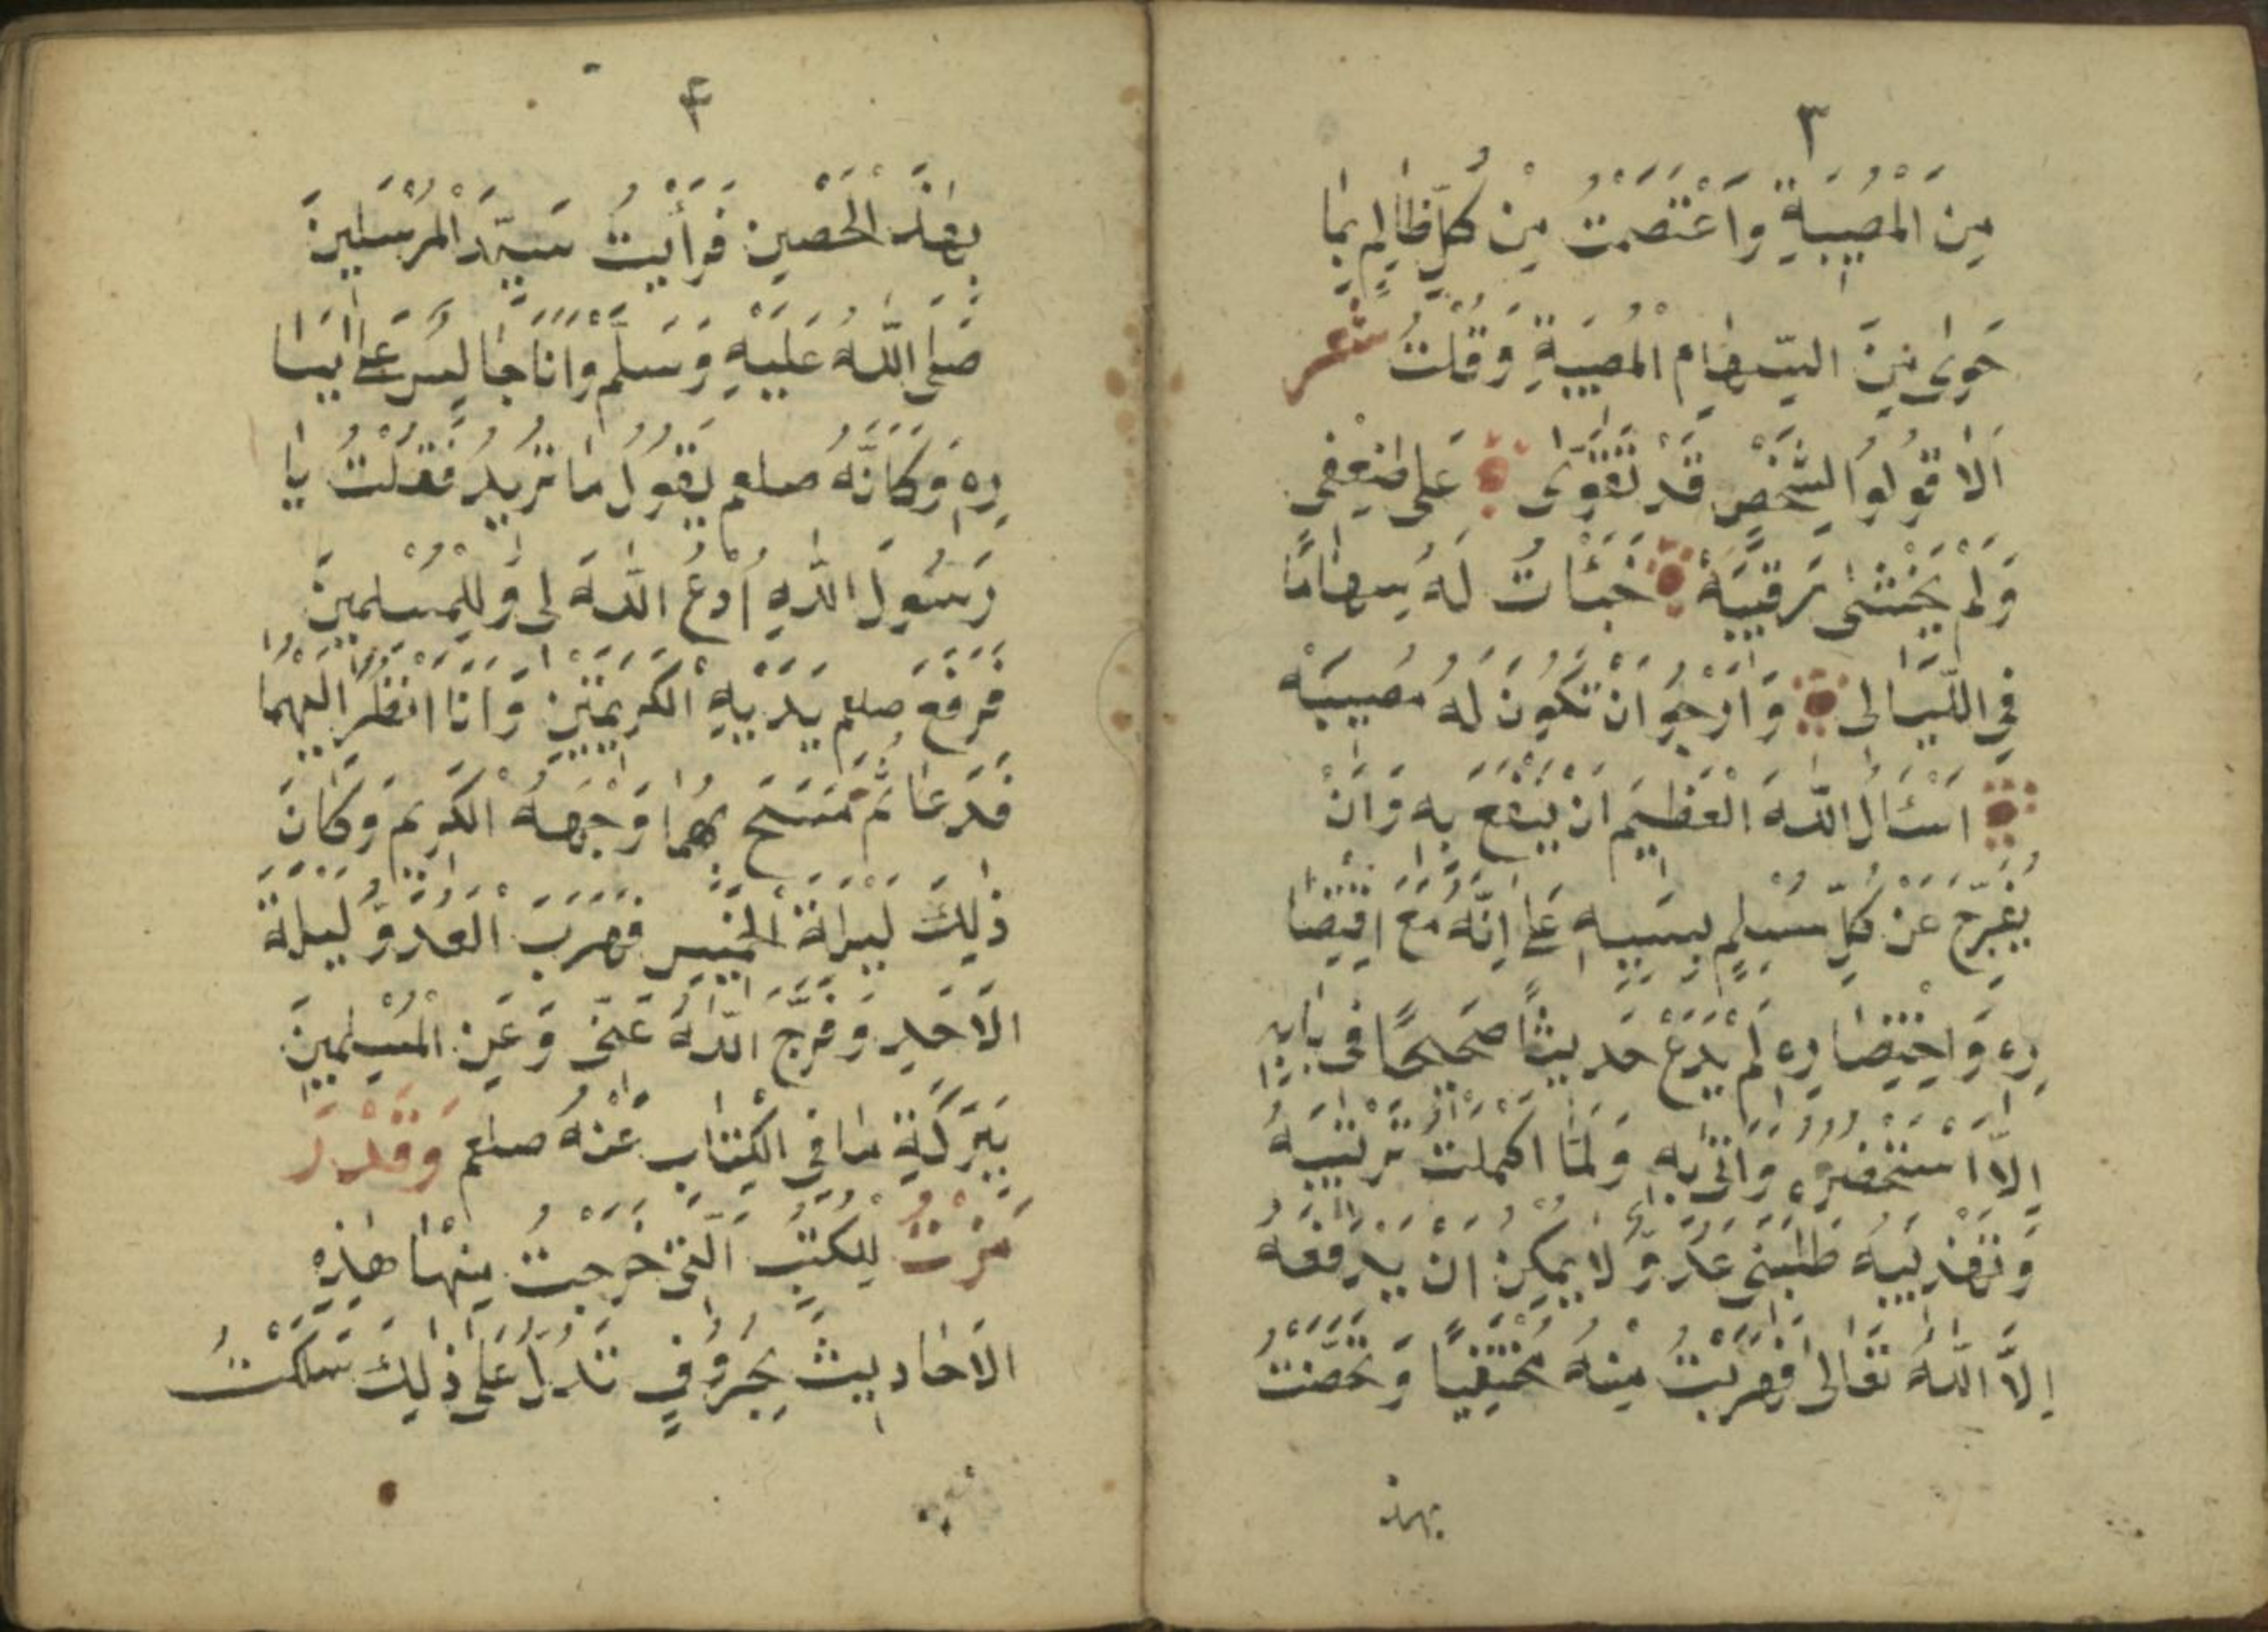 ٣
مِنَ الْمُصِيبَةِ وَاعْتَصَمْتُ مِنْ كُلِّ ظَالِمٍ بِمَا
حَوٰى مِنَ السِّهَامِ الْمُصِيبَةِ وَقُلْتُ شعر
اَلَا قُولُوا لِشَخْصٍ قَدْ تَقَوّٰى عَلٰى ضَعْفِى
وَلَمْ يَخْشٰى رَقِيبَهْ خَبَئْاتُ لَهُ سِهَامًا
فِى اللَّيَالِى وَاَرْجُو اَنْ تَكُونَ لَهُ مُصِيبَهْ
اَسْئَالُ اللّٰهَ الْعَظِيمَ اَنْ يَنْفَعَ بِهِ وَاَنْ
يُفَرِّجَ عَنْ كُلِّ مُسْلِمٍ بِسَبَبِهِ عَلٰى اِنَّهُ مَعَ اقْتِصَا
رِهِ وَاخْتِصَارِهِ لَمْ يَدَعْ حَدِيثًا صَحِيحًا فِى بَابِهِ
اِلَّا اسْتَحْضَرَهُ وَاَتٰى بِهِ وَلَمَّا اَكْمَلْتُ تَرْتِيبَهُ
وَتَهْذِيبَهُ طَلَبَنِى عَدُوٌّ لَا يُمْكِنُ اَنْ يَدْفَعَهُ
اِلَّا اللّٰهُ تَعَالٰى فَهَرَبْتُ مِنْهُ مُخْتَفِيًا وَتَحَصَّنْتُ
بهذ
۴
بِهٰذَ الْحَصِينِ فَرَأَيْتُ سَيِّدَ الْمُرْسَلِينَ
صَلَّى اللّٰهُ عَلَيْهِ وَسَلَّمَ وَاَنَا جَالِسٌ عَلٰى يَسَا
رِهِ وَكَاَنَّهُ صلعم يَقُولُ مَا تُرِيدُ فَقُلْتُ يَا
رَسُولَ اللّٰهِ اُدْعُ اللّٰهَ لِى وَلِلْمُسْلِمِينَ
فَرَفَعَ صلعم يَدَيْهِ الْكَرِيمَتَيْنِ وَاَنَا اَنْظُرُ اِلَيْهِمَا
فَدَعَا ثُمَّ مَسَحَ بِهِمَا وَجْهَهُ الْكَرِيمَ وَكَانَ
ذٰلِكَ لَيْلَةَ الْخَمِيسِ فَهَرَبَ الْعَدُوُّ لَيْلَةَ
الْاَحَدِ وَفَرَّجَ اللّٰهُ عَنِّى وَعَنِ الْمُسْلِمِينَ
بِبَرَكَةِ مَا فِى الْكِتَابِ عَنْهُ صلعم وَقَدْ رَ
مَزْتُ لِلْكُتُبِ الَّتِى خَرَجْتُ مِنْهَا هٰذِهِ
الْاَحَادِيثَ بِحُرُوفٍ تَدُلُّ عَلٰى ذٰلِكَ سَلَكْتُ